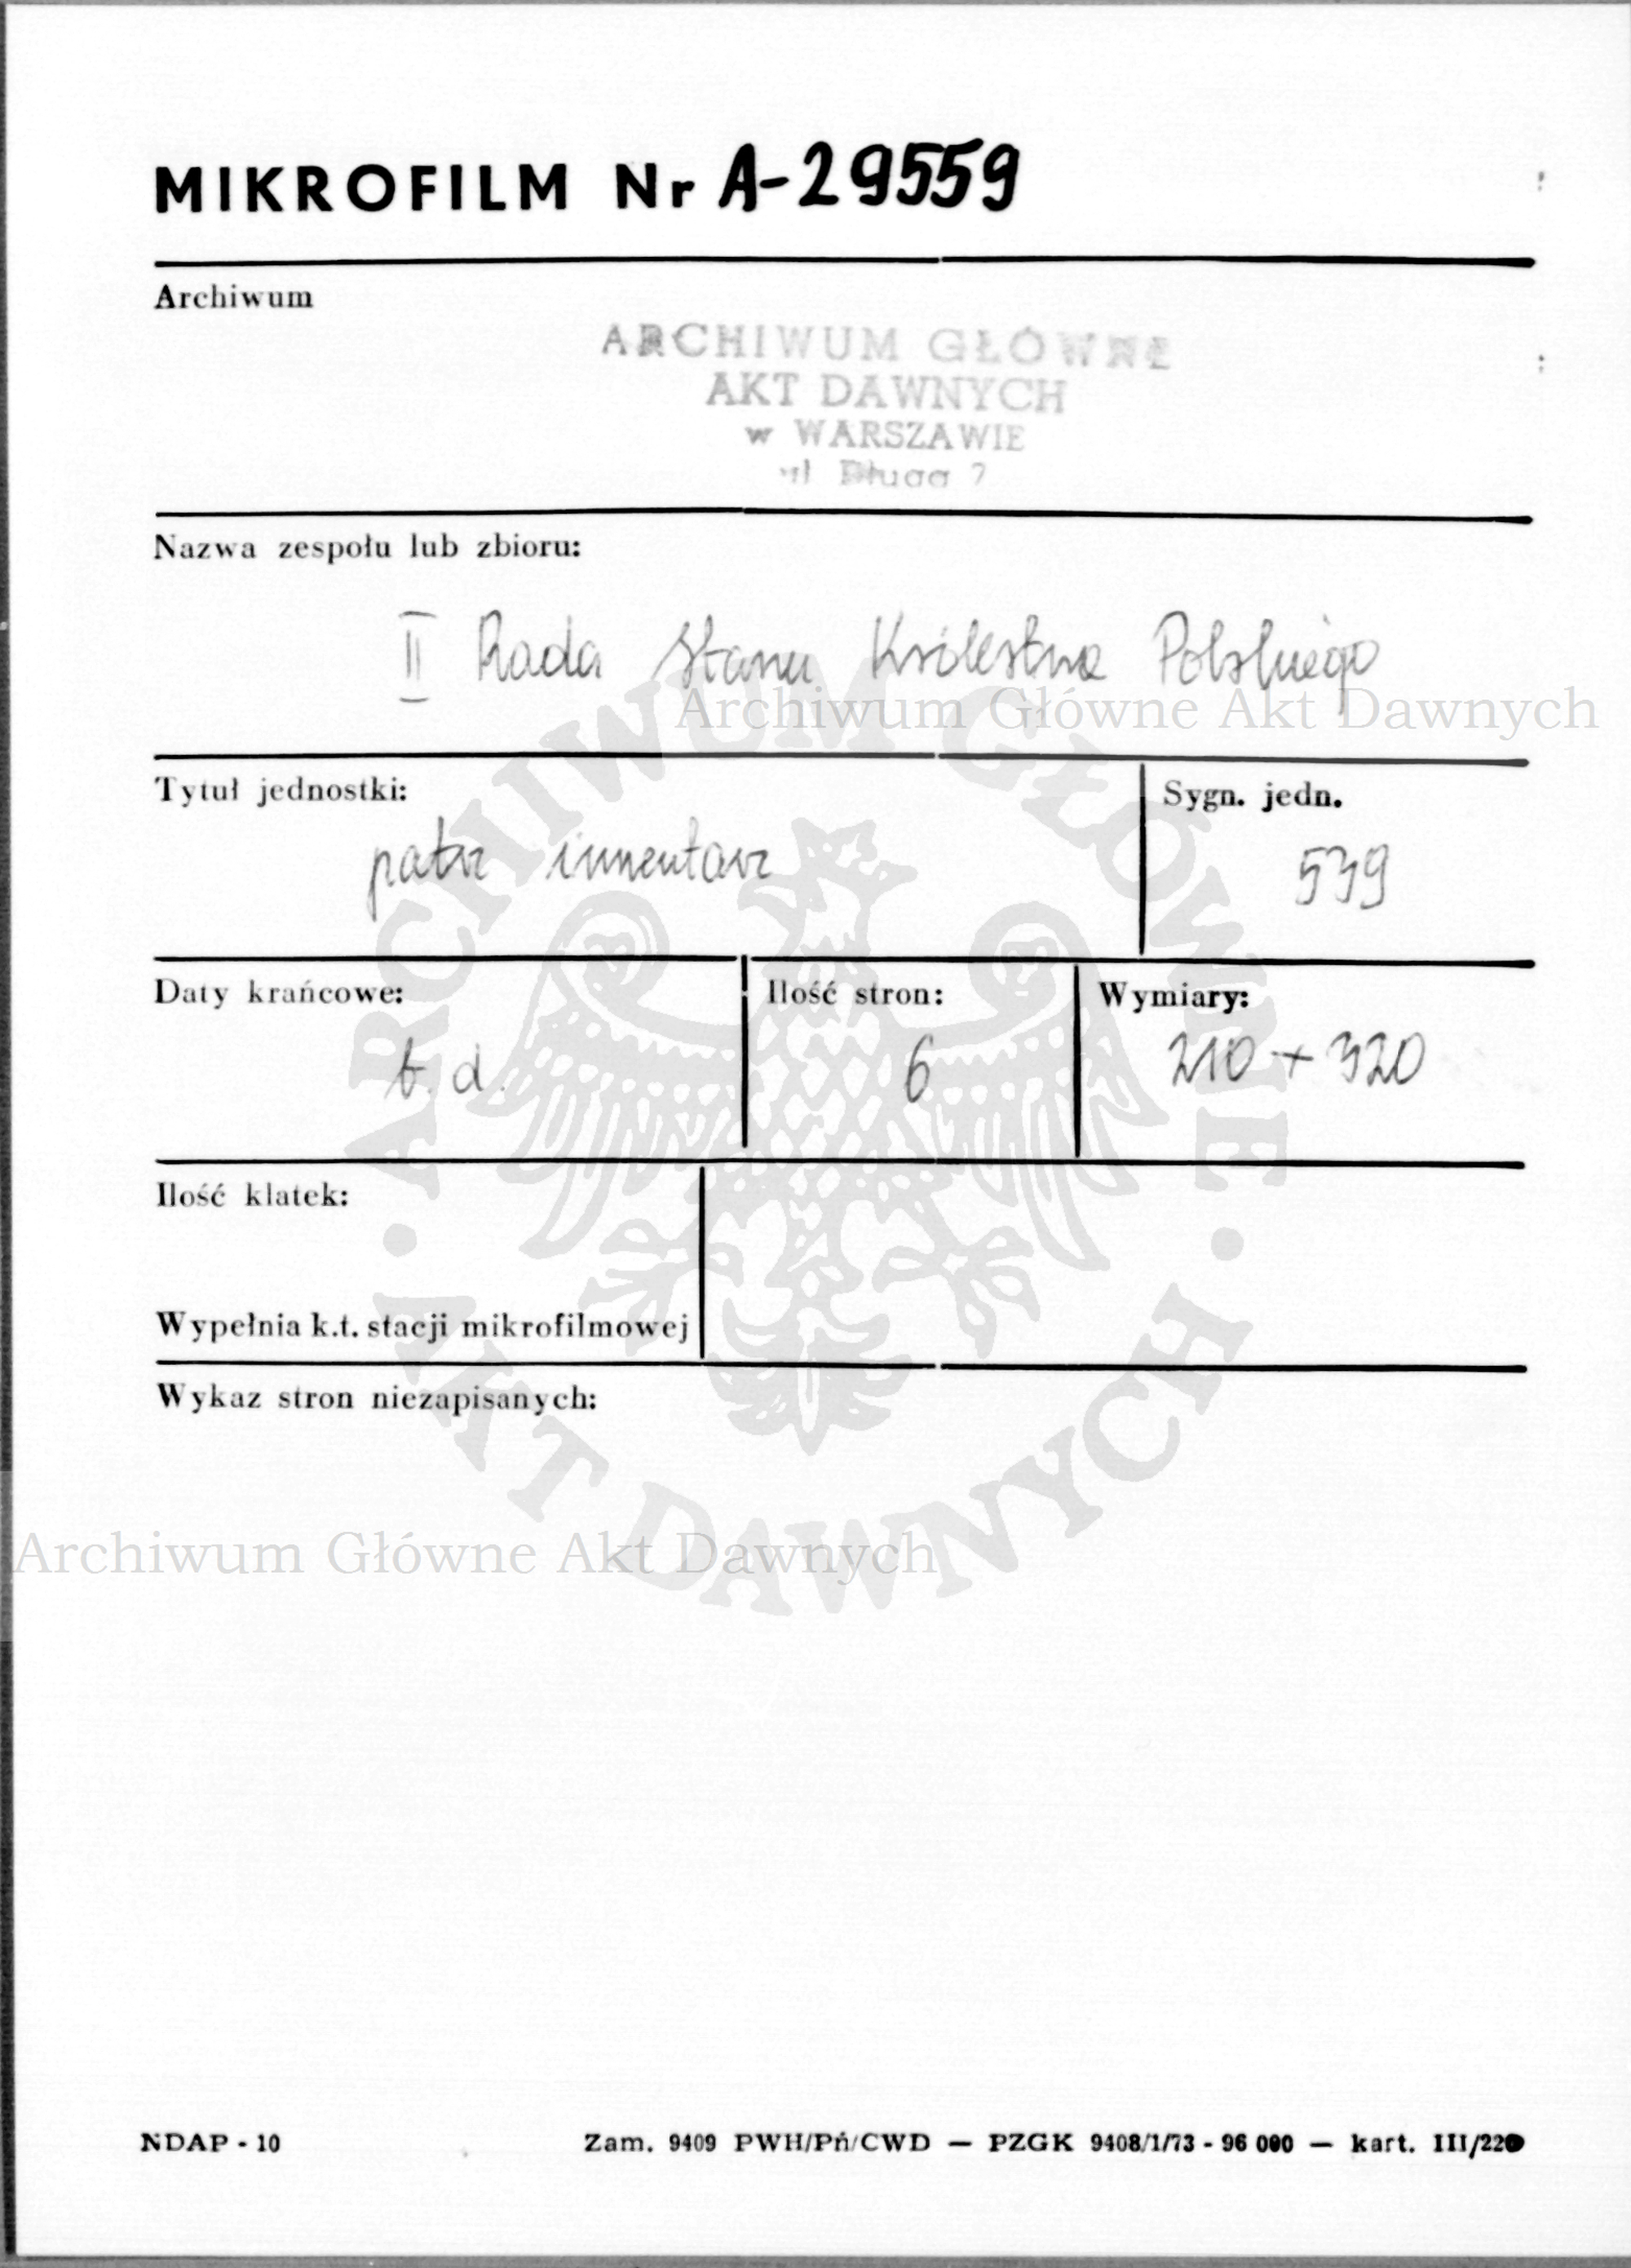 MIKROFILM Nr A-29559
Archiwum
ARCHIWUM GŁÓWNE
AKT DAWNYCH
w WARSZAWIE
ul Długa 7
Nazwa zespołu lub zbioru:
II Rada Stanu Królestwa Polskiego
Archiwum Główne Akt Dawnych
Tytuł jednostki:
patrz inwentarz
Sygn. jedn.
539
Daty krańcowe:
b. d.
Ilość stron:
6
Wymiary:
210 + 320
Ilość klatek:
Wypełnia k.t. stacji mikrofilmowej
Wykaz stron niezapisanych:
Archiwum Główne Akt Dawnych
ARCHIWUM GŁÓWNE
AKT DAWNYCH
NDAP - 10
Zam. 9409 PWH/Pń/CWD — PZGK 9408/1/73 - 96 000 — kart. III/220